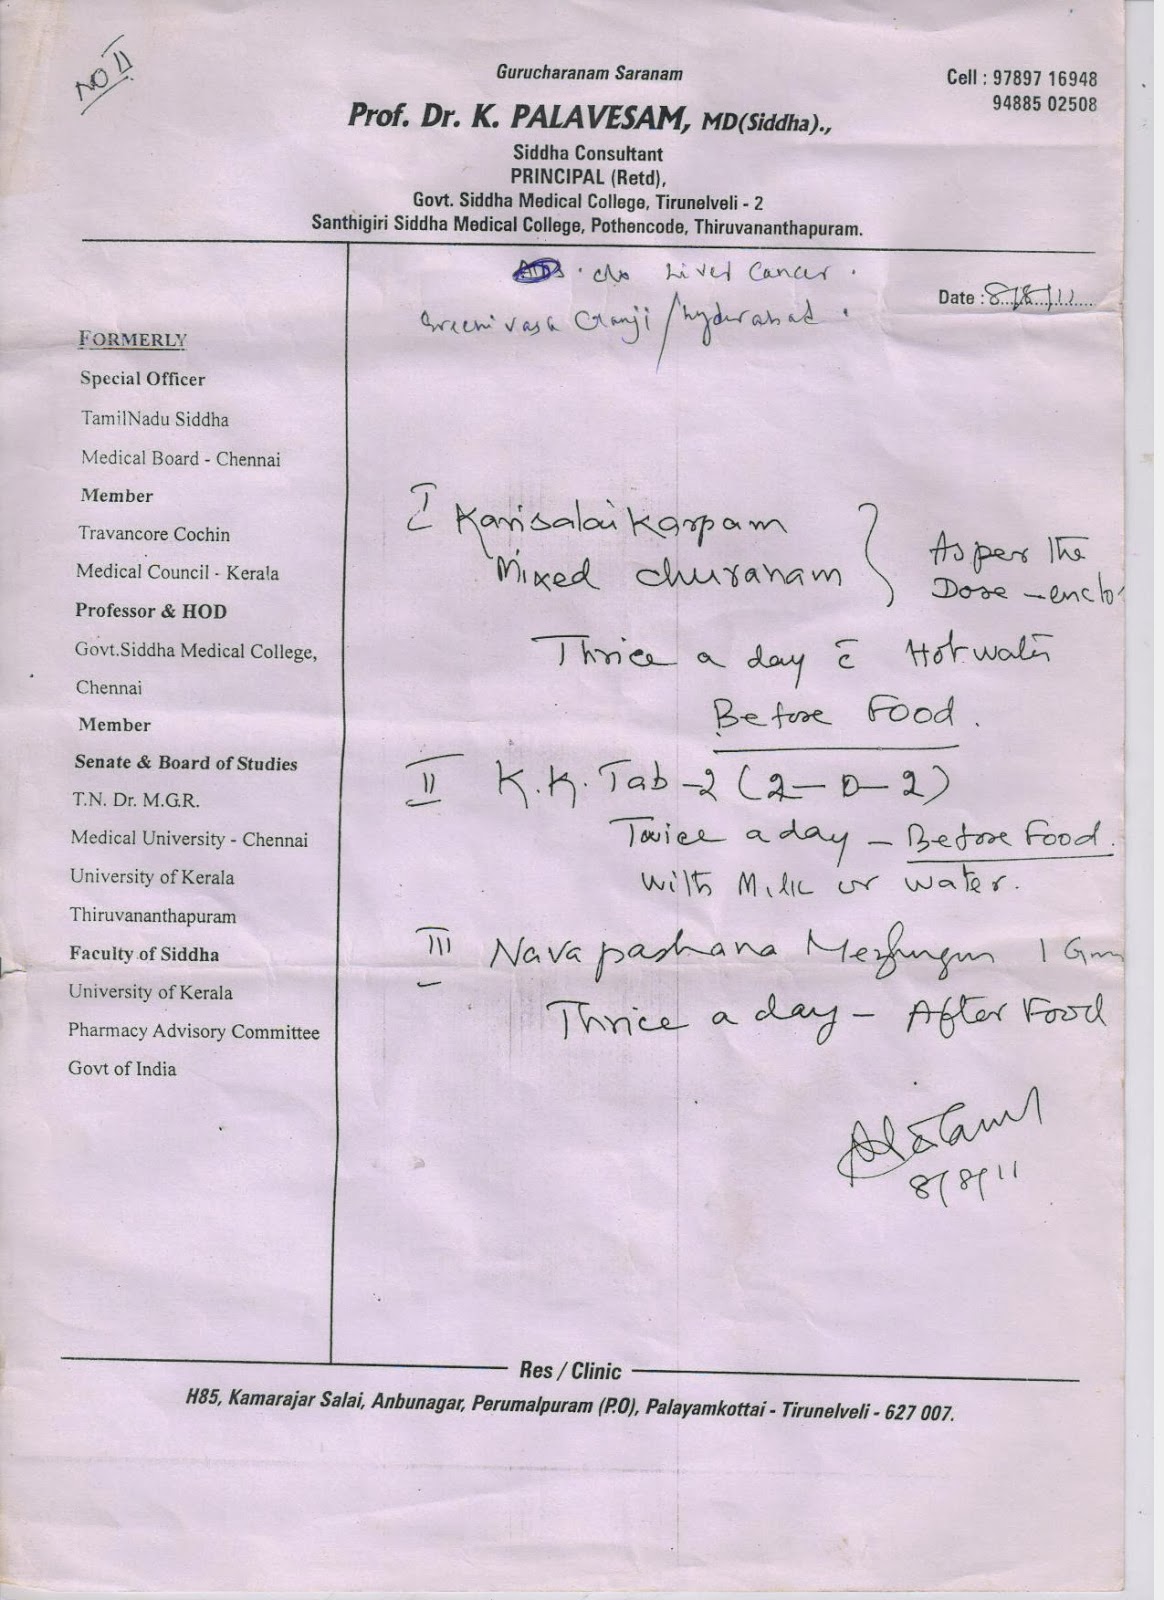 NO II
Gurucharanam Saranam
Cell : 97897 16948
94885 02508
Prof. Dr. K. PALAVESAM, MD(Siddha).,
Siddha Consultant
PRINCIPAL (Retd),
Govt. Siddha Medical College, Tirunelveli - 2
Santhigiri Siddha Medical College, Pothencode, Thiruvananthapuram.
c/o Liver Cancer.
Date : 8/8/11
Sreenivasa Ganji / Hyderabad.
FORMERLY
Special Officer
TamilNadu Siddha
Medical Board - Chennai
Member
Travancore Cochin
Medical Council - Kerala
Professor & HOD
Govt.Siddha Medical College,
Chennai
Member
Senate & Board of Studies
T.N. Dr. M.G.R.
Medical University - Chennai
University of Kerala
Thiruvananthapuram
Faculty of Siddha
University of Kerala
Pharmacy Advisory Committee
Govt of India
I Karisalai Karpam
Mixed churanam } As per the
Dose - enclo
Thrice a day c̄ Hot water
Before Food.
II K.K. Tab -2 (2-0-2)
Twice a day - Before Food.
With Milk or water.
III Nava pashana Mezhugu 1 Gm
Thrice a day - After Food
8/8/11
Res / Clinic
H85, Kamarajar Salai, Anbunagar, Perumalpuram (P.O), Palayamkottai - Tirunelveli - 627 007.